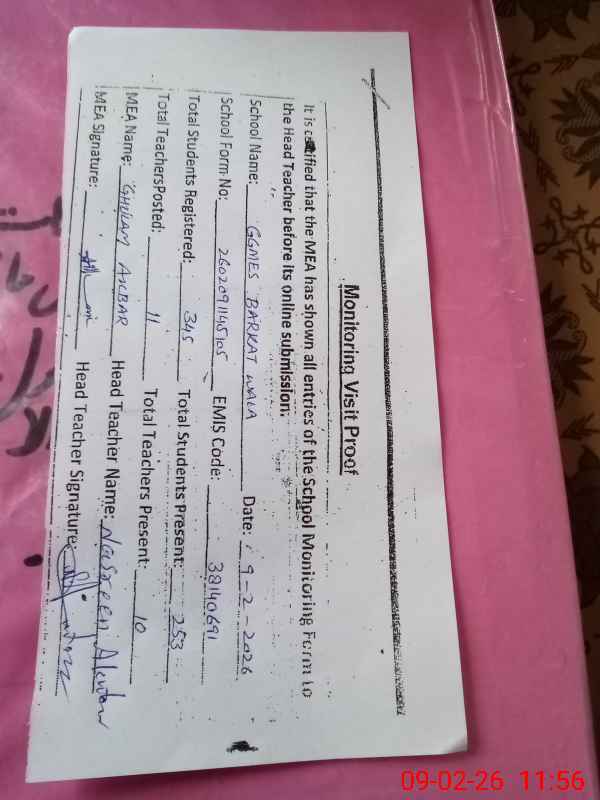 Monitoring Visit Proof
It is certified that the MEA has shown all entries of the School Monitoring Form to
the Head Teacher before its online submission.
School Name: GGMES BARKAT WALA Date: 9-2-2026
School Form No: 2602091145105 EMIS Code: 38140691
Total Students Registered: 345 Total Students Present: 253
Total TeachersPosted: 11 Total Teachers Present: 10
MEA Name: GHULAM AKBAR Head Teacher Name: Nasreen Akhtar
MEA Signature: Head Teacher Signature:
09-02-26 11:56